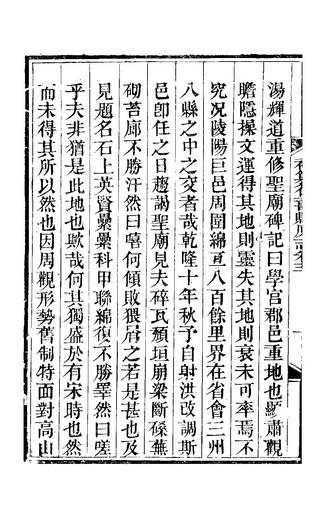 湯輝道重修聖廟碑記曰學官郡邑重地也顯肅觀
瞻隱操文運得其地則靈失其地則衰未可率焉不
究况陵陽巨邑周圍綿亘八百餘里界在省會三州
八縣之中之交者哉乾隆十年秋予自射洪改調斯
邑卽任之日趨謁聖廟見夫碎瓦頹垣崩梁斷孫蕪
砌苔廊不勝汗然曰嘻何傾敗猥屑之若是甚也及
見題名石上英賢纍纍科甲聯綿復不勝睪然曰嗟
乎夫非猶是此地也歟哉何其獨盛於有宋時也然
而未得其所以然也因周觀形勢舊制特面對高山